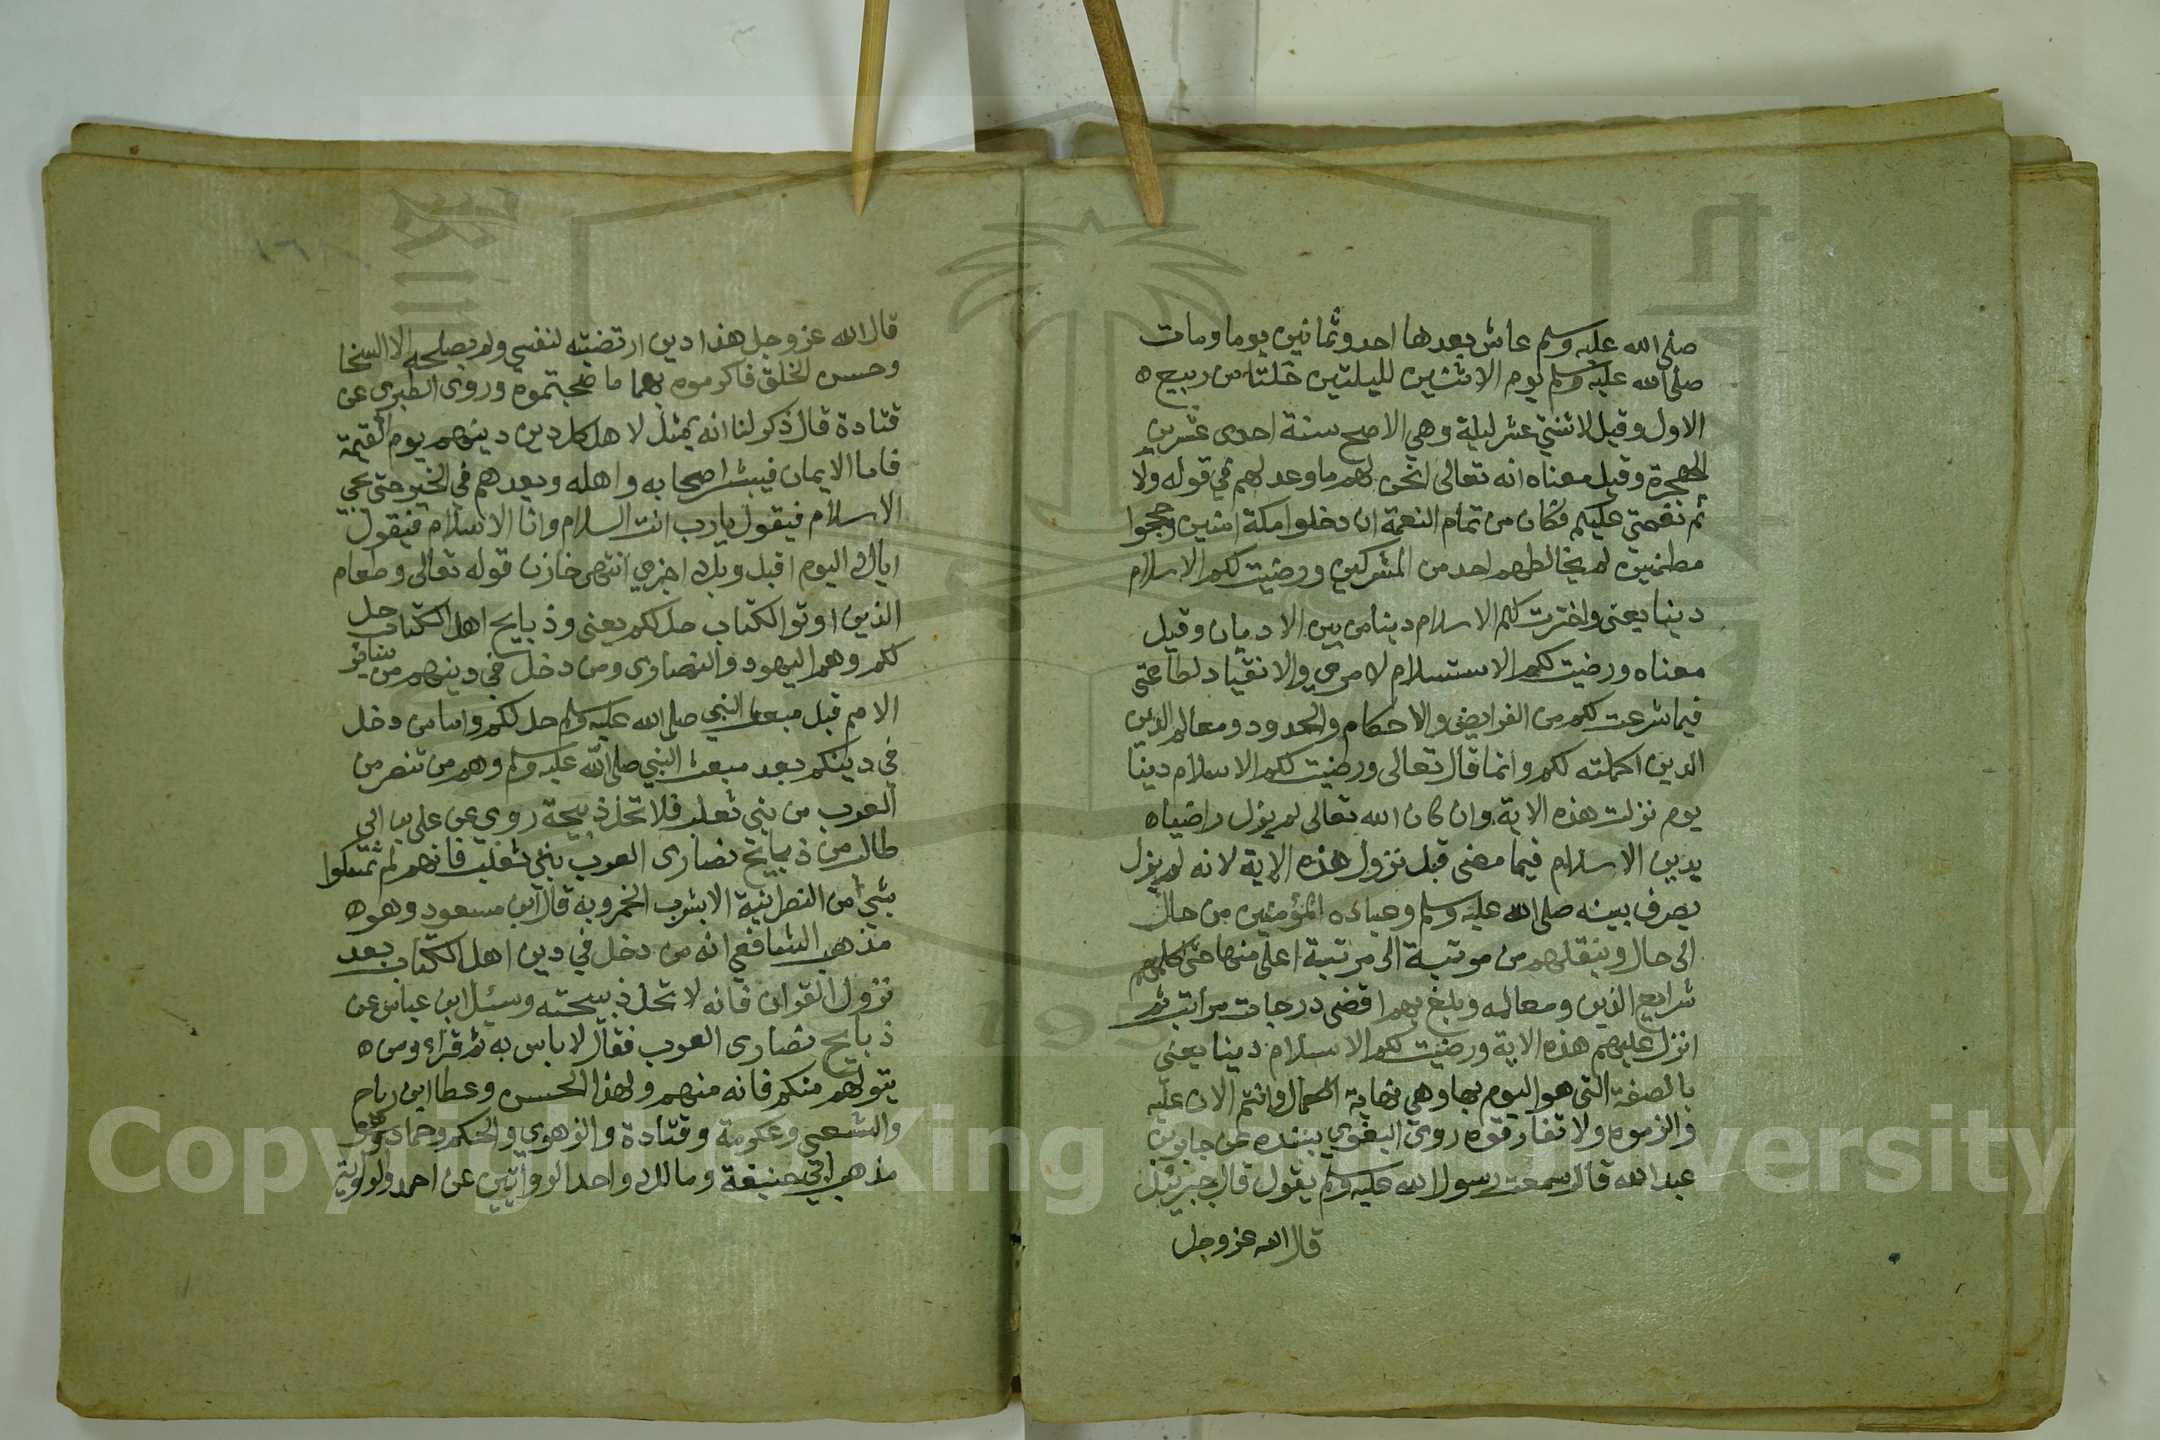 صلى الله عليه وسلم عاش بعدها احد وثمانين يوما ومات
صلى الله عليه وسلم يوم الاثنين لليلتين خلتا من ربيع
الاول وقيل لاثنتي عشر ليلة وهي الاصح سنة احدى عشرين
الهجرة وقيل معناه انه تعالى انجز لهم ما وعدلهم في قوله ولا
تم نعمتي عليكم فكان من تمام النعمة ان دخلوا مكة امنين وحجوا
مطمنين لم يخالطهم احد من المشركين ورضيت لكم الاسلام
دينا يعنى واخترت لكم الاسلام دينا من بين الاديان وقيل
معناه ورضيت لكم الاستسلام لامري والانقياد لطاعتي
فيما شرعت لكم من الفرايض والاحكام والحدود ومعالم الدين
الدين اكملته لكم وانما قال تعالى ورضيت لكم الاسلام دينا
يوم نزلت هذه الاية وان كان الله تعالى لم يزل راضياه
يدين الاسلام فيما مضى قبل نزول هذه الاية لانه لم يزل
يصرف بينه صلى الله عليه وسلم وعباده المؤمنين من حال
الى حال وينقلهم من مرتبة الى مرتبة اعلى منها حتى
شرايع الدين ومعالمه وبلغ بهم اقضى درجات مراتب ثم
انزل عليهم هذه الاية ورضيت لكم الاسلام دينا يعنى
بالصفة التى هو اليوم بها وهي نهاية الكمال وانتم الان عليه
والزموه ولا تفارقوه روى البغوي بسنده عن جابر بن
عبد الله قال سمعت رسول الله عليه وسلم يقول قال جبريل
قال الله عز وجل
قال الله عز وجل هذا دين ارتضيته لنفسي ولم يصلحه الا السخا
وحسن الخلق فاكرموه بهما ما صحبتموه وروى الطبرى عن
قتادة قال ذكر لنا انه يمثل لاهل كل دين دينهم يوم القيمة
فاما الايمان فيبشر اصحابه واهله ويعدهم في الخير حتى يجي
الاسلام فيقول يا رب انت السلام وانا الاسلام فيقول
اياك اليوم اقبل وبك اجزي انتهى خازن قوله تعالى وطعام
الذين اوتو الكتاب حل لكم يعنى وذبايح اهل الكتاب حل
لكم وهم اليهود والنصارى ومن دخل في دينهم من
الامم قبل مبعث النبي صلى الله عليه وسلم حل لكم واما من دخل
في دينكم بعد مبعث النبي صلى الله عليه وسلم وهم من تنصر من
العرب من بني تغلب فلا تحل ذبيحة روي عن علي بن ابي
طالب من ذبايح نصارى العرب بني تغلب فانهم لم تمسكوا
بشئ من النصرانية الا بشرب الخمر وبه قال ابن مسعود وهو
مذهب الشافعي انه من دخل في دين اهل الكتاب بعد
نزول القران فانه لا تحل ذبيحته وسيئل ابن عباس عن
ذبايح نصارى العرب فقال لا باس به ثم قراء ومن
يتولهم منكم فانه منهم ولهذا الحسن وعطا ابن رباح
والشعبي وعكرمة وقتادة والزهري والحكم وحماد وهو
مذهب ابي حنيفة ومالك واحد الروايتين عن احمد
Copyright © King Saud University